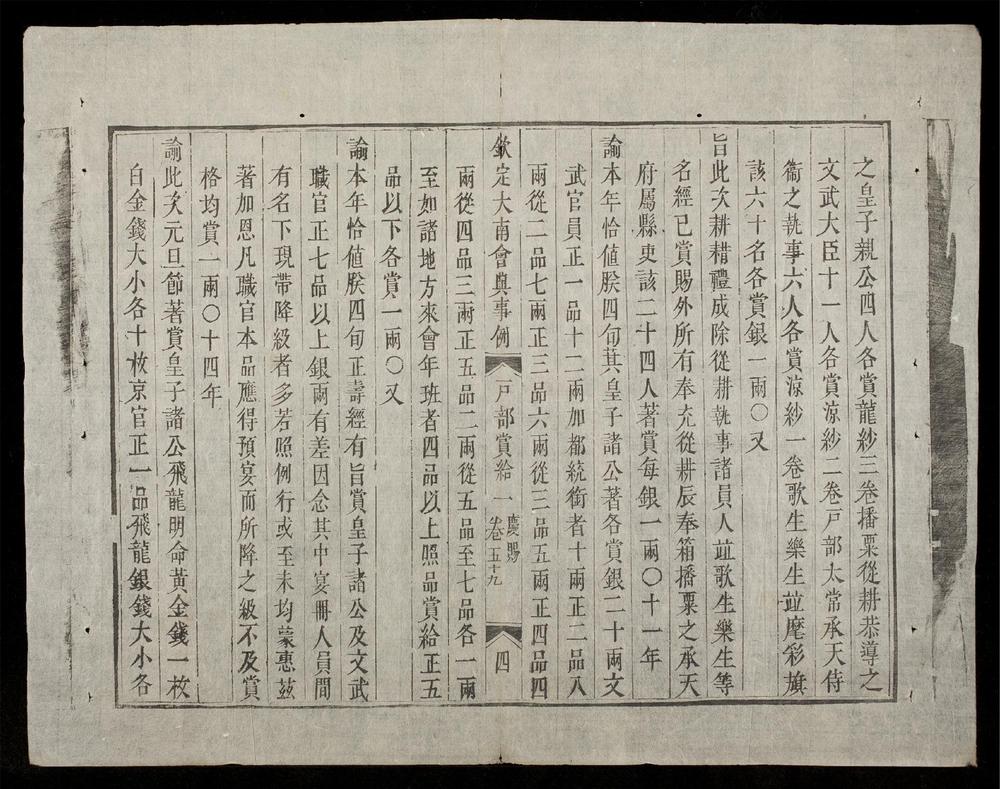 之皇子親公四人各賞龍紗三卷播粟從耕恭導之
文武大臣十一人各賞涼紗二卷戸部太常承天侍
衛之執事六人各賞涼紗一卷歌生樂生竝麾彩旗
該六十名各賞銀一兩〇又
旨此次耕耤禮成除從耕執事諸員人竝歌生樂生等
名經已賞賜外所有奉充從耕辰奉箱播粟之承天
府屬縣吏該二十四人著賞每銀一兩〇十一年
諭本年恰值朕四旬其皇子諸公著各賞銀二十兩文
武官員正一品十二兩加都統銜者十兩正二品八
兩從二品七兩正三品六兩從三品五兩正四品四
欽定大南會典事例 戸部賞給一 慶賜 卷五十九 四
兩從四品三兩正五品二兩從五品至七品各一兩
至如諸地方來會年班者四品以上照品賞給正五
品以下各賞一兩〇又
諭本年恰值朕四旬正壽經有旨賞皇子諸公及文武
職官正七品以上銀兩有差因念其中宴冊人員間
有名下現帶降級者多若照例行或至未均蒙惠茲
著加恩凡職官本品應得預宴而所降之級不及賞
格均賞一兩〇十四年
諭此次元旦節著賞皇子諸公飛龍明命黃金錢一枚
白金錢大小各十枚京官正一品飛龍銀錢大小各